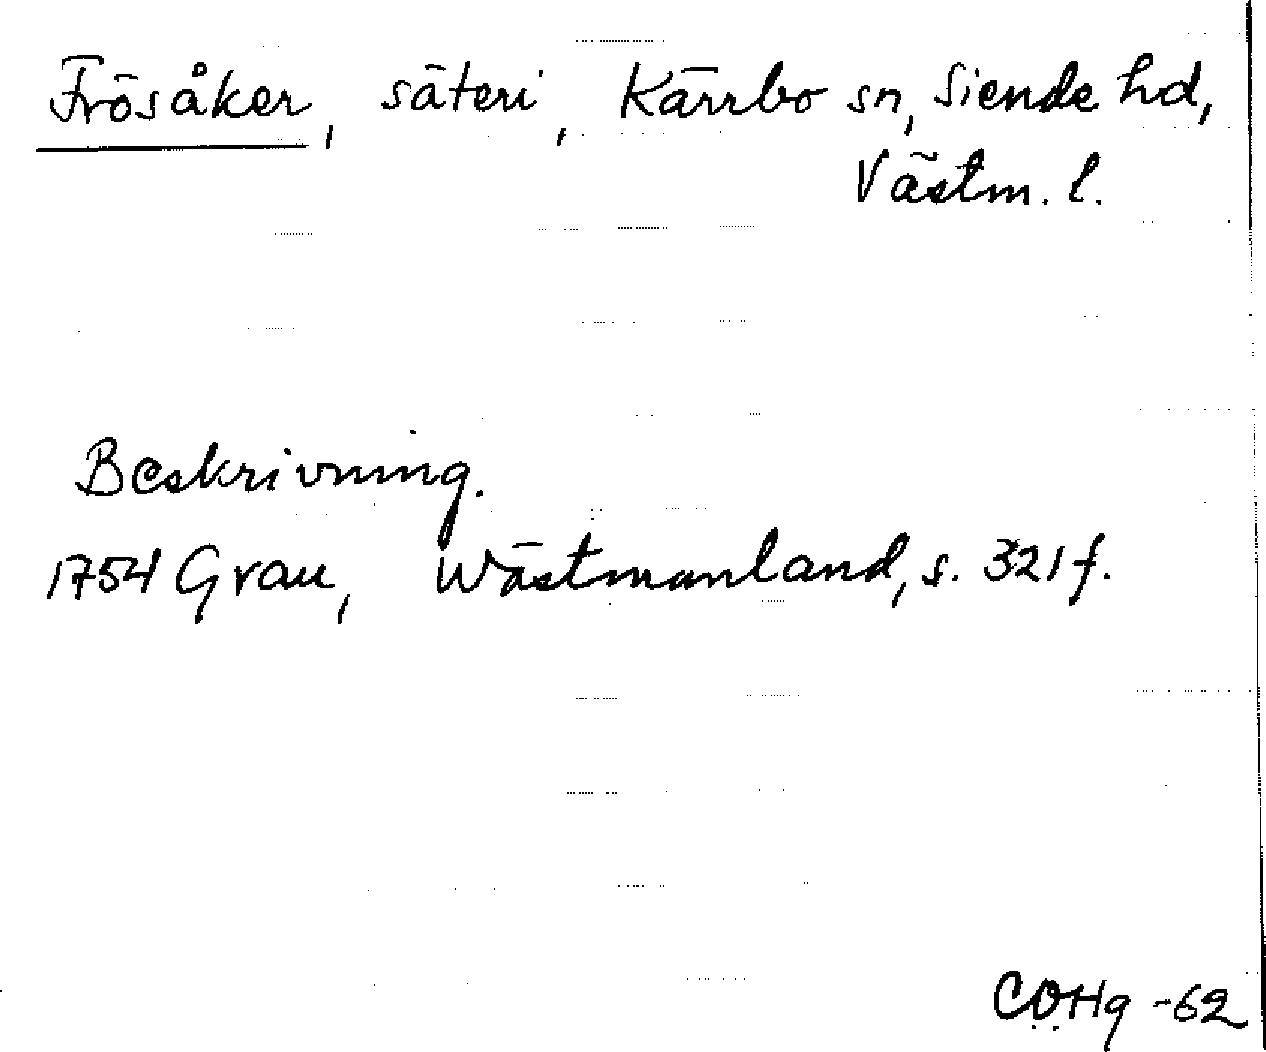 Frösåker, säteri, Kärrbo sn, Siende hd,
Västm. l.
Beskrivning.
1754 Grau, Wästmanland, s. 321 f.
COHg -62